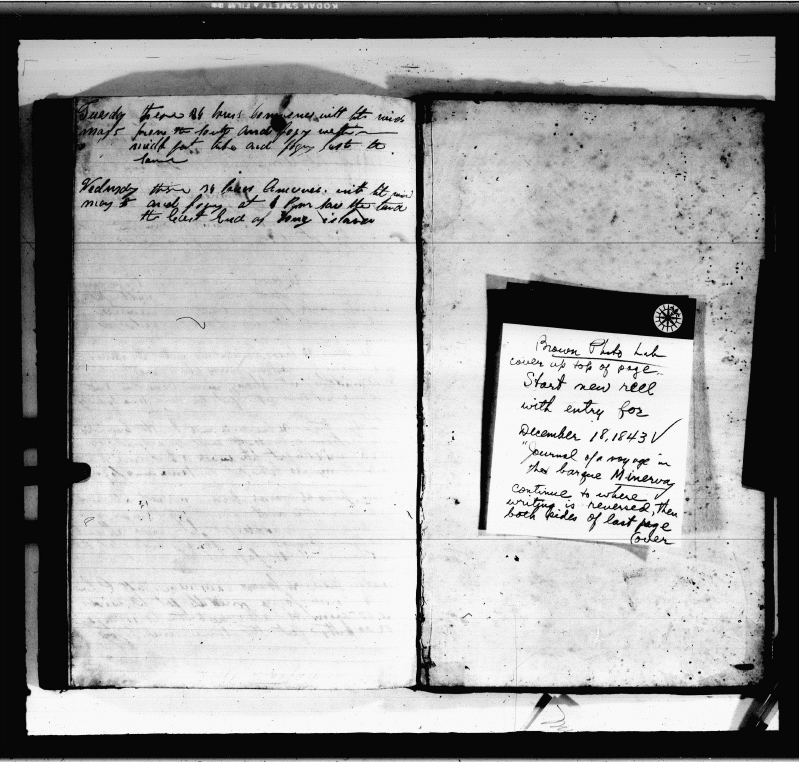 KODAK SAFETY FILM
Tuesday these 24 hours Comences with lite wind
may from to and fogy wether
lost to
land
Wednsdy these 24 hours Comences with lite wind
may and fogy at 6 Pm saw the land
the East End of Long island
Brown Photo Lab
cover up top of page.
Start new reel
with entry for
December 18, 1843 ✓
"Journal of a voyage in
the barque Minerva
continue to where
writing is reversed, then
both sides of last page
(over